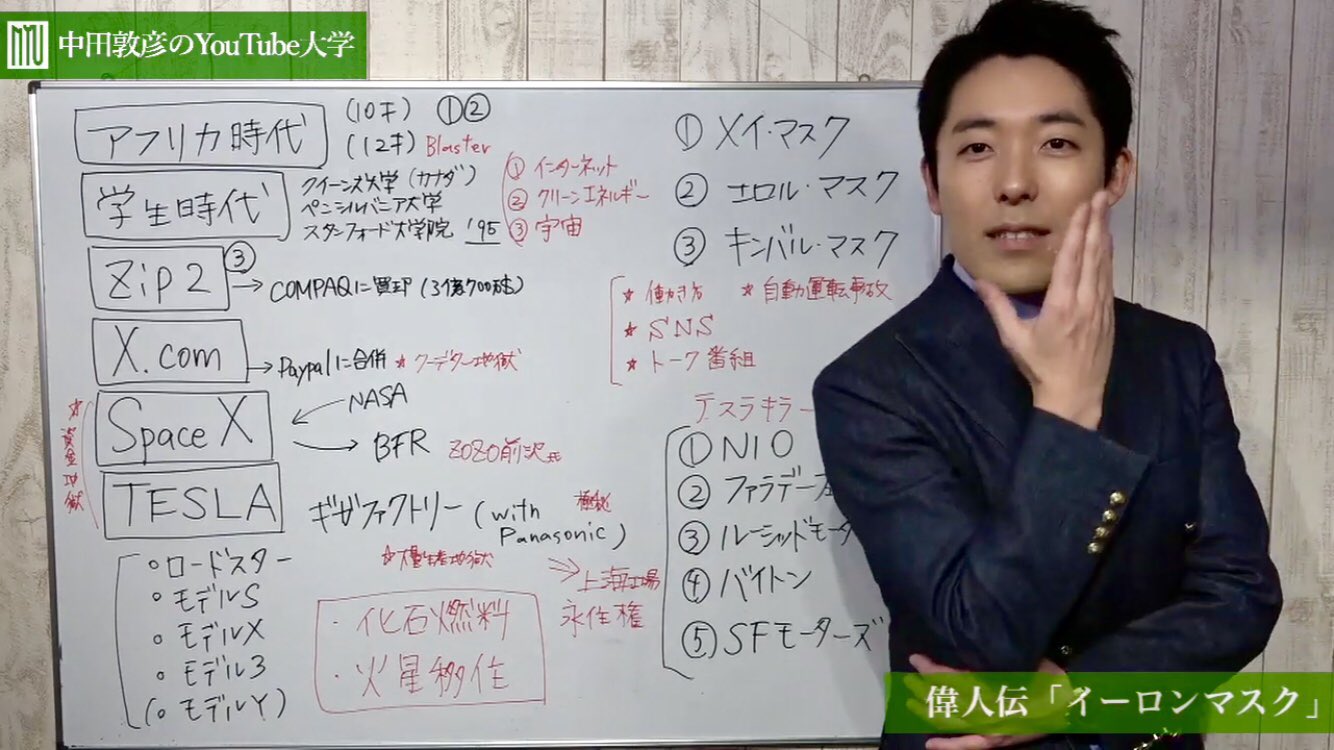 中田敦彦のYouTube大学
アフリカ時代
(10才) ①②
(12才) Blaster
学生時代
クイーンズ大学 (カナダ)
ペンシルバニア大学
スタンフォード大学院 '95
① インターネット
② クリーンエネルギー
③ 宇宙
Zip2 ③
→ COMPAQに買収 (3億700万ドル)
X.com
→ Paypalに合併 ☆クーデター地獄
☆資金地獄
SpaceX
NASA
→ BFR ZOZO前沢氏
TESLA
ギガファクトリー (with Panasonic) 極秘
☆大量生産地獄
⇒ 上海工場
永住権
○ロードスター
○モデルS
○モデルX
○モデル3
(○モデルY)
・化石燃料
・火星移住
① メイ・マスク
② エロル・マスク
③ キンバル・マスク
☆ 働き方 ☆ 自動運転事故
☆ SNS
☆ トーク番組
テスラキラー
① NIO
② ファラデーフ
③ ルーシッドモータ
④ バイトン
⑤ SFモーターズ
偉人伝「イーロンマスク」